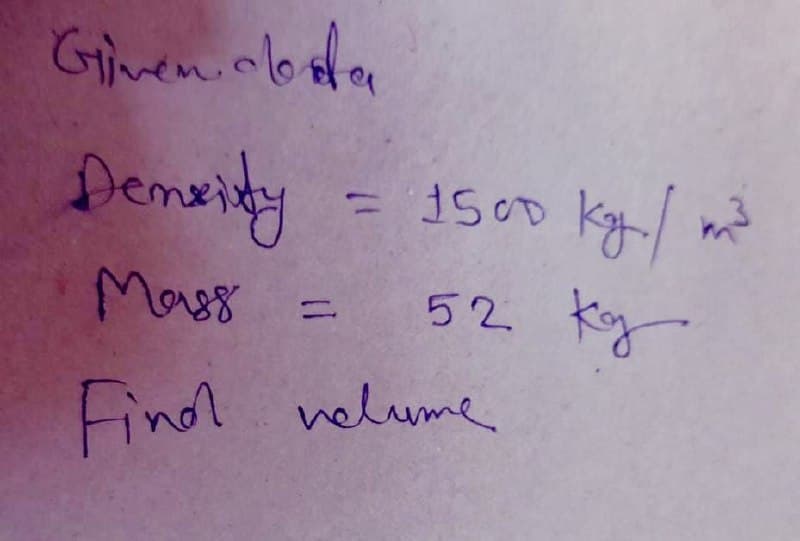 Given data
Density = 1500 kg/m³
Mass = 52 kg
Find volume